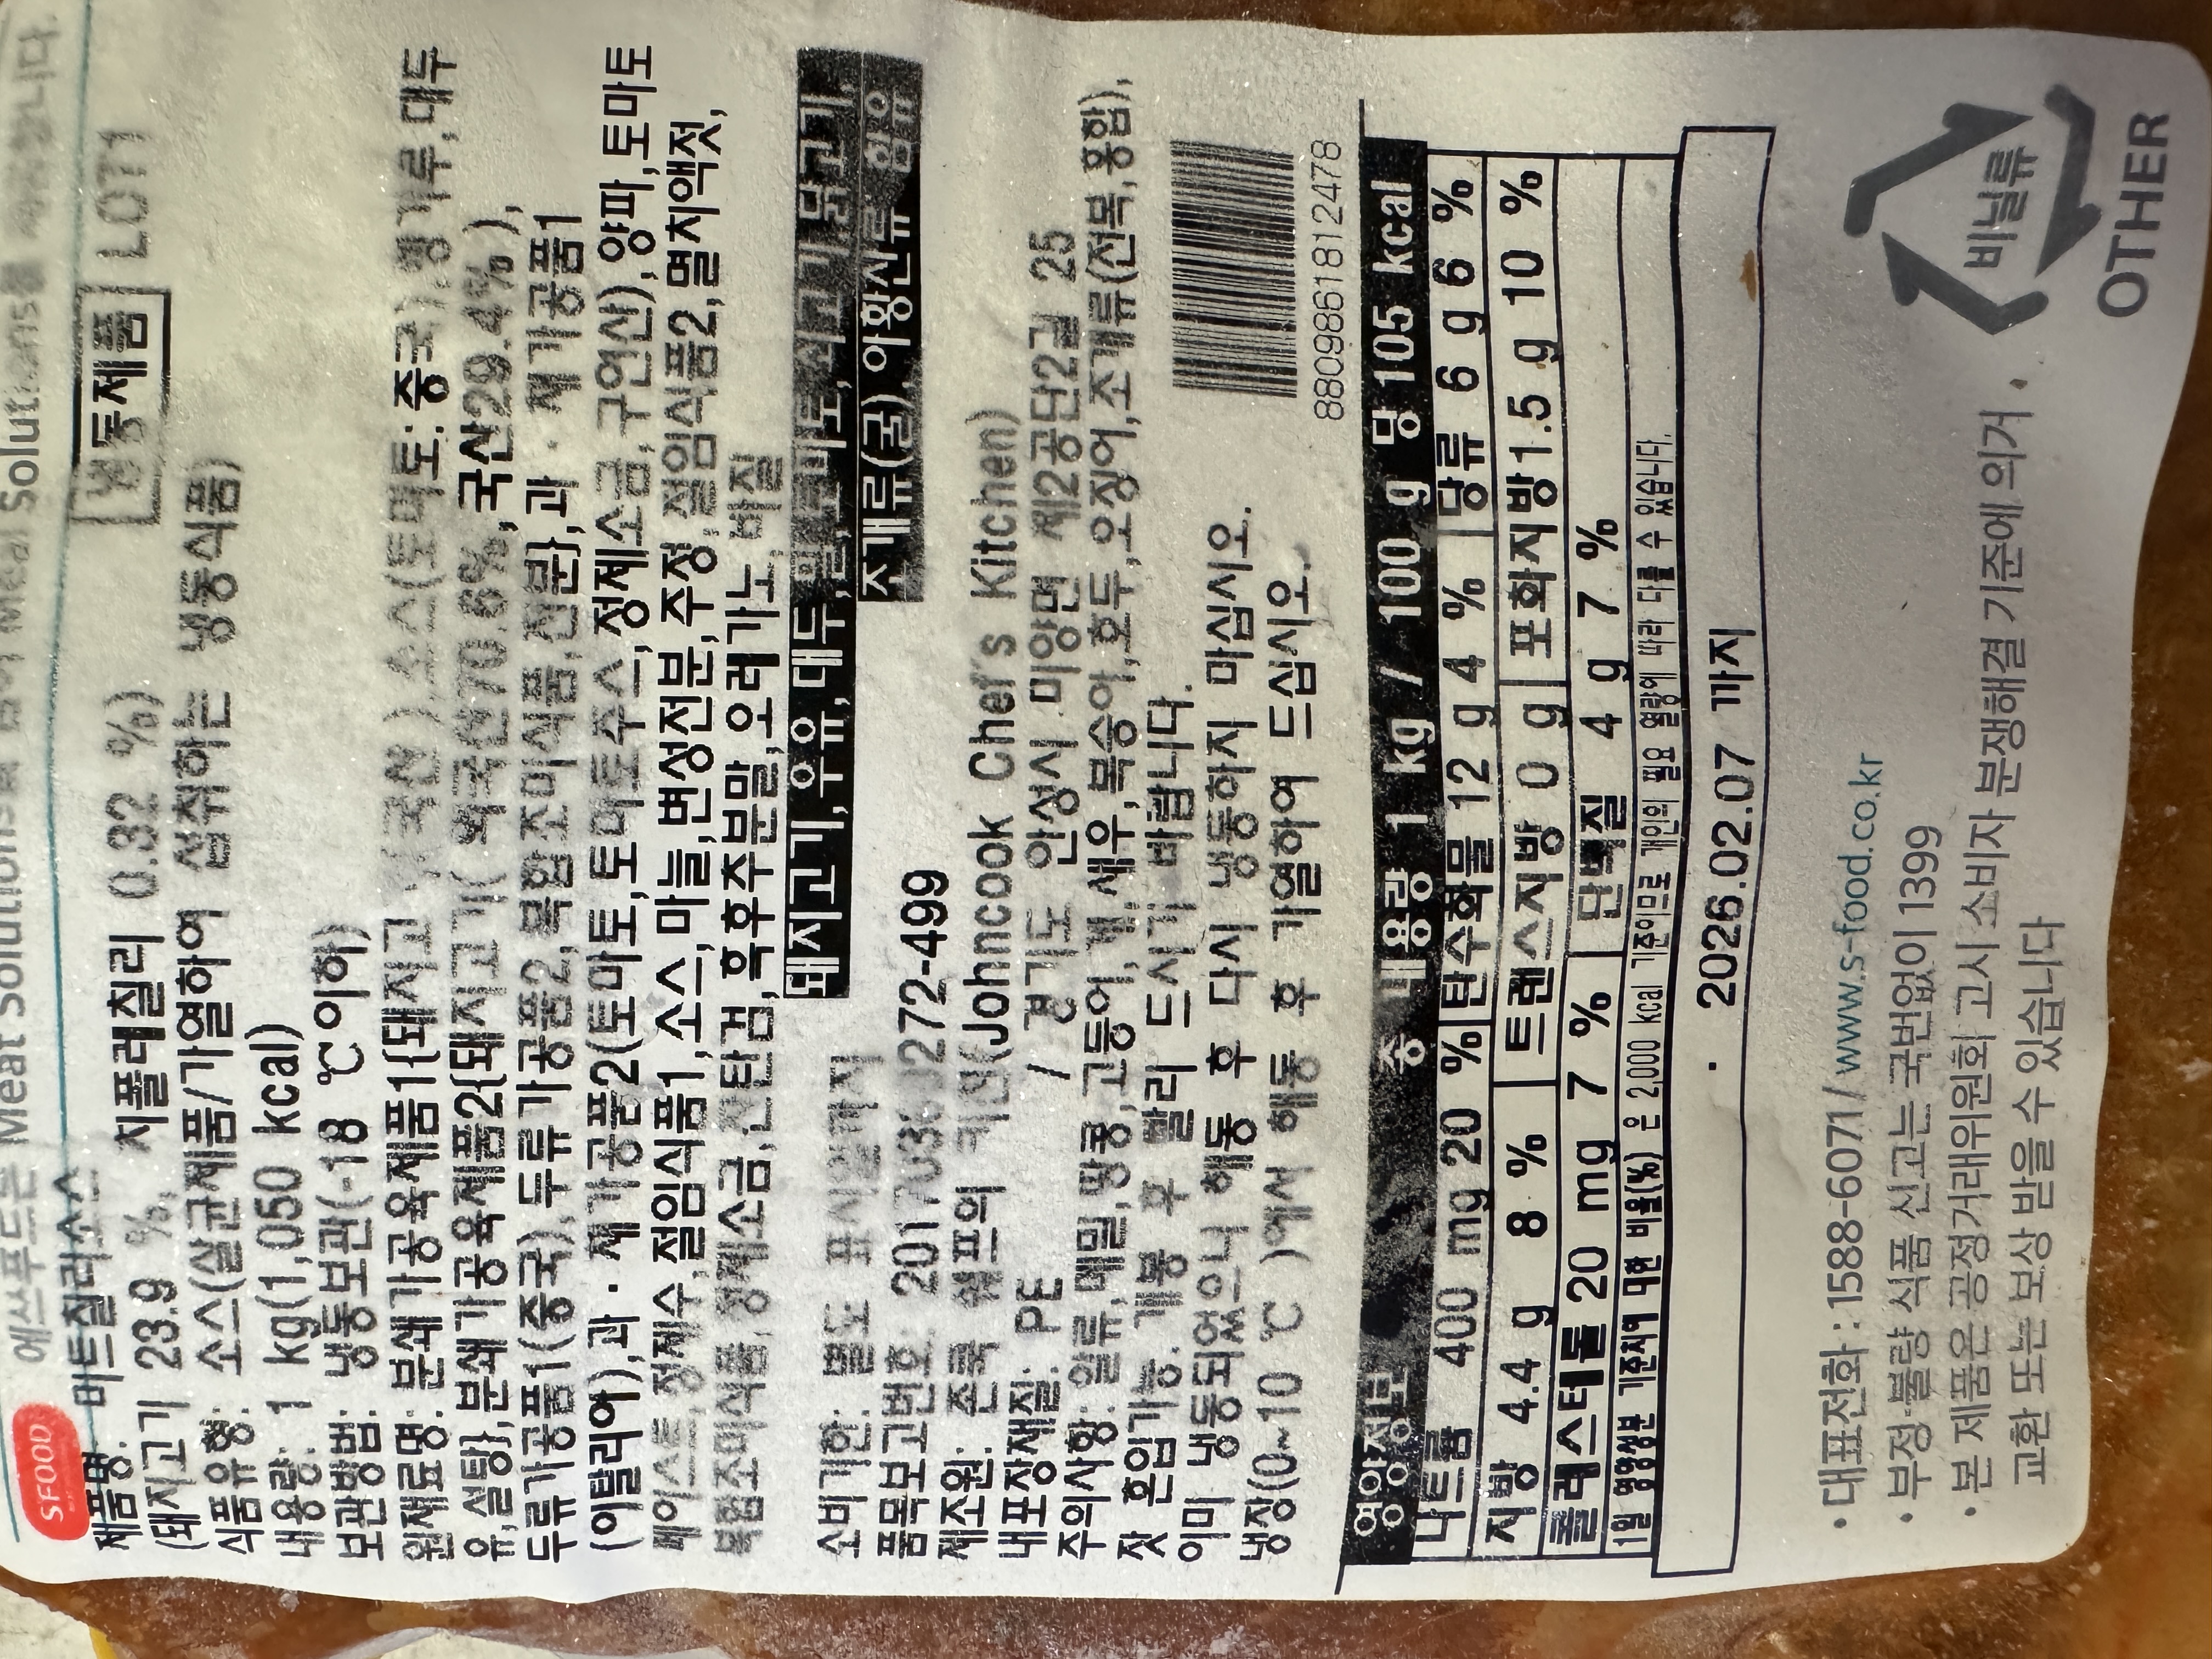 에쓰푸드는 Meat Solutions를 넘어 Meal Solutions를
SFOOD
제품명: 미트칠리소스 냉동제품 LOT1
(돼지고기 23.9 %, 치폴레칠리 0.32 %)
식품유형: 소스(살균제품/가열하여 섭취하는 냉동식품)
내용량: 1 kg(1,050 kcal)
보관방법: 냉동보관(-18 ℃이하)
원재료명: 분쇄가공육제품1{돼지고기(국산),소스(토마토:중국),빵가루,대두
유,설탕},분쇄가공육제품2{돼지고기(외국산70.6%,국산29.4%),
두류가공품1(중국),두류가공품2,복합조미식품,전분},과·채가공품1
(이탈리아),과·채가공품2(토마토,토마토주스,정제소금,구연산),양파,토마토
페이스트,정제수,절임식품1,소스,마늘,변성전분,주정,절임식품2,멸치액젓,
복합조미식품,정제소금,잔탄검,흑후추분말,오레가노,바질
돼지고기,우유,대두,밀,토마토,쇠고기,닭고기,
조개류(굴),아황산류 함유
소비기한: 별도 표시일까지
품목보고번호: 272-499
제조원: 존쿡 쉐프의 키친(Johncook Chef's Kitchen)
내포장재질: PE / 경기도 안성시 미양면 제2공단2길 25
주의사항: 알류,메밀,땅콩,고등어,게,새우,복숭아,호두,오징어,조개류(전복,홍합),
잣 혼입가능. 개봉 후 빨리 드시기 바랍니다.
이미 냉동되었으니 해동 후 다시 냉동하지 마십시오.
냉장(0~10 ℃)에서 해동 후 가열하여 드십시오.
8809861812478
영양정보 총 내용량 1 kg / 100 g 당 105 kcal
나트륨 400 mg 20 % 탄수화물 12 g 4 % 당류 6 g 6 %
지방 4.4 g 8 % 트랜스지방 0 g 포화지방1.5 g 10 %
콜레스테롤 20 mg 7 % 단백질 4 g 7 %
1일 영양성분 기준치에 대한 비율(%)은 2,000 kcal 기준이므로 개인의 필요 열량에 따라 다를 수 있습니다.
2026.02.07 까지
• 대표전화 : 1588-6071 / www.s-food.co.kr
• 부정·불량 식품 신고는 국번없이 1399
• 본 제품은 공정거래위원회 고시 소비자 분쟁해결 기준에 의거,
교환 또는 보상 받을 수 있습니다
비닐류
OTHER